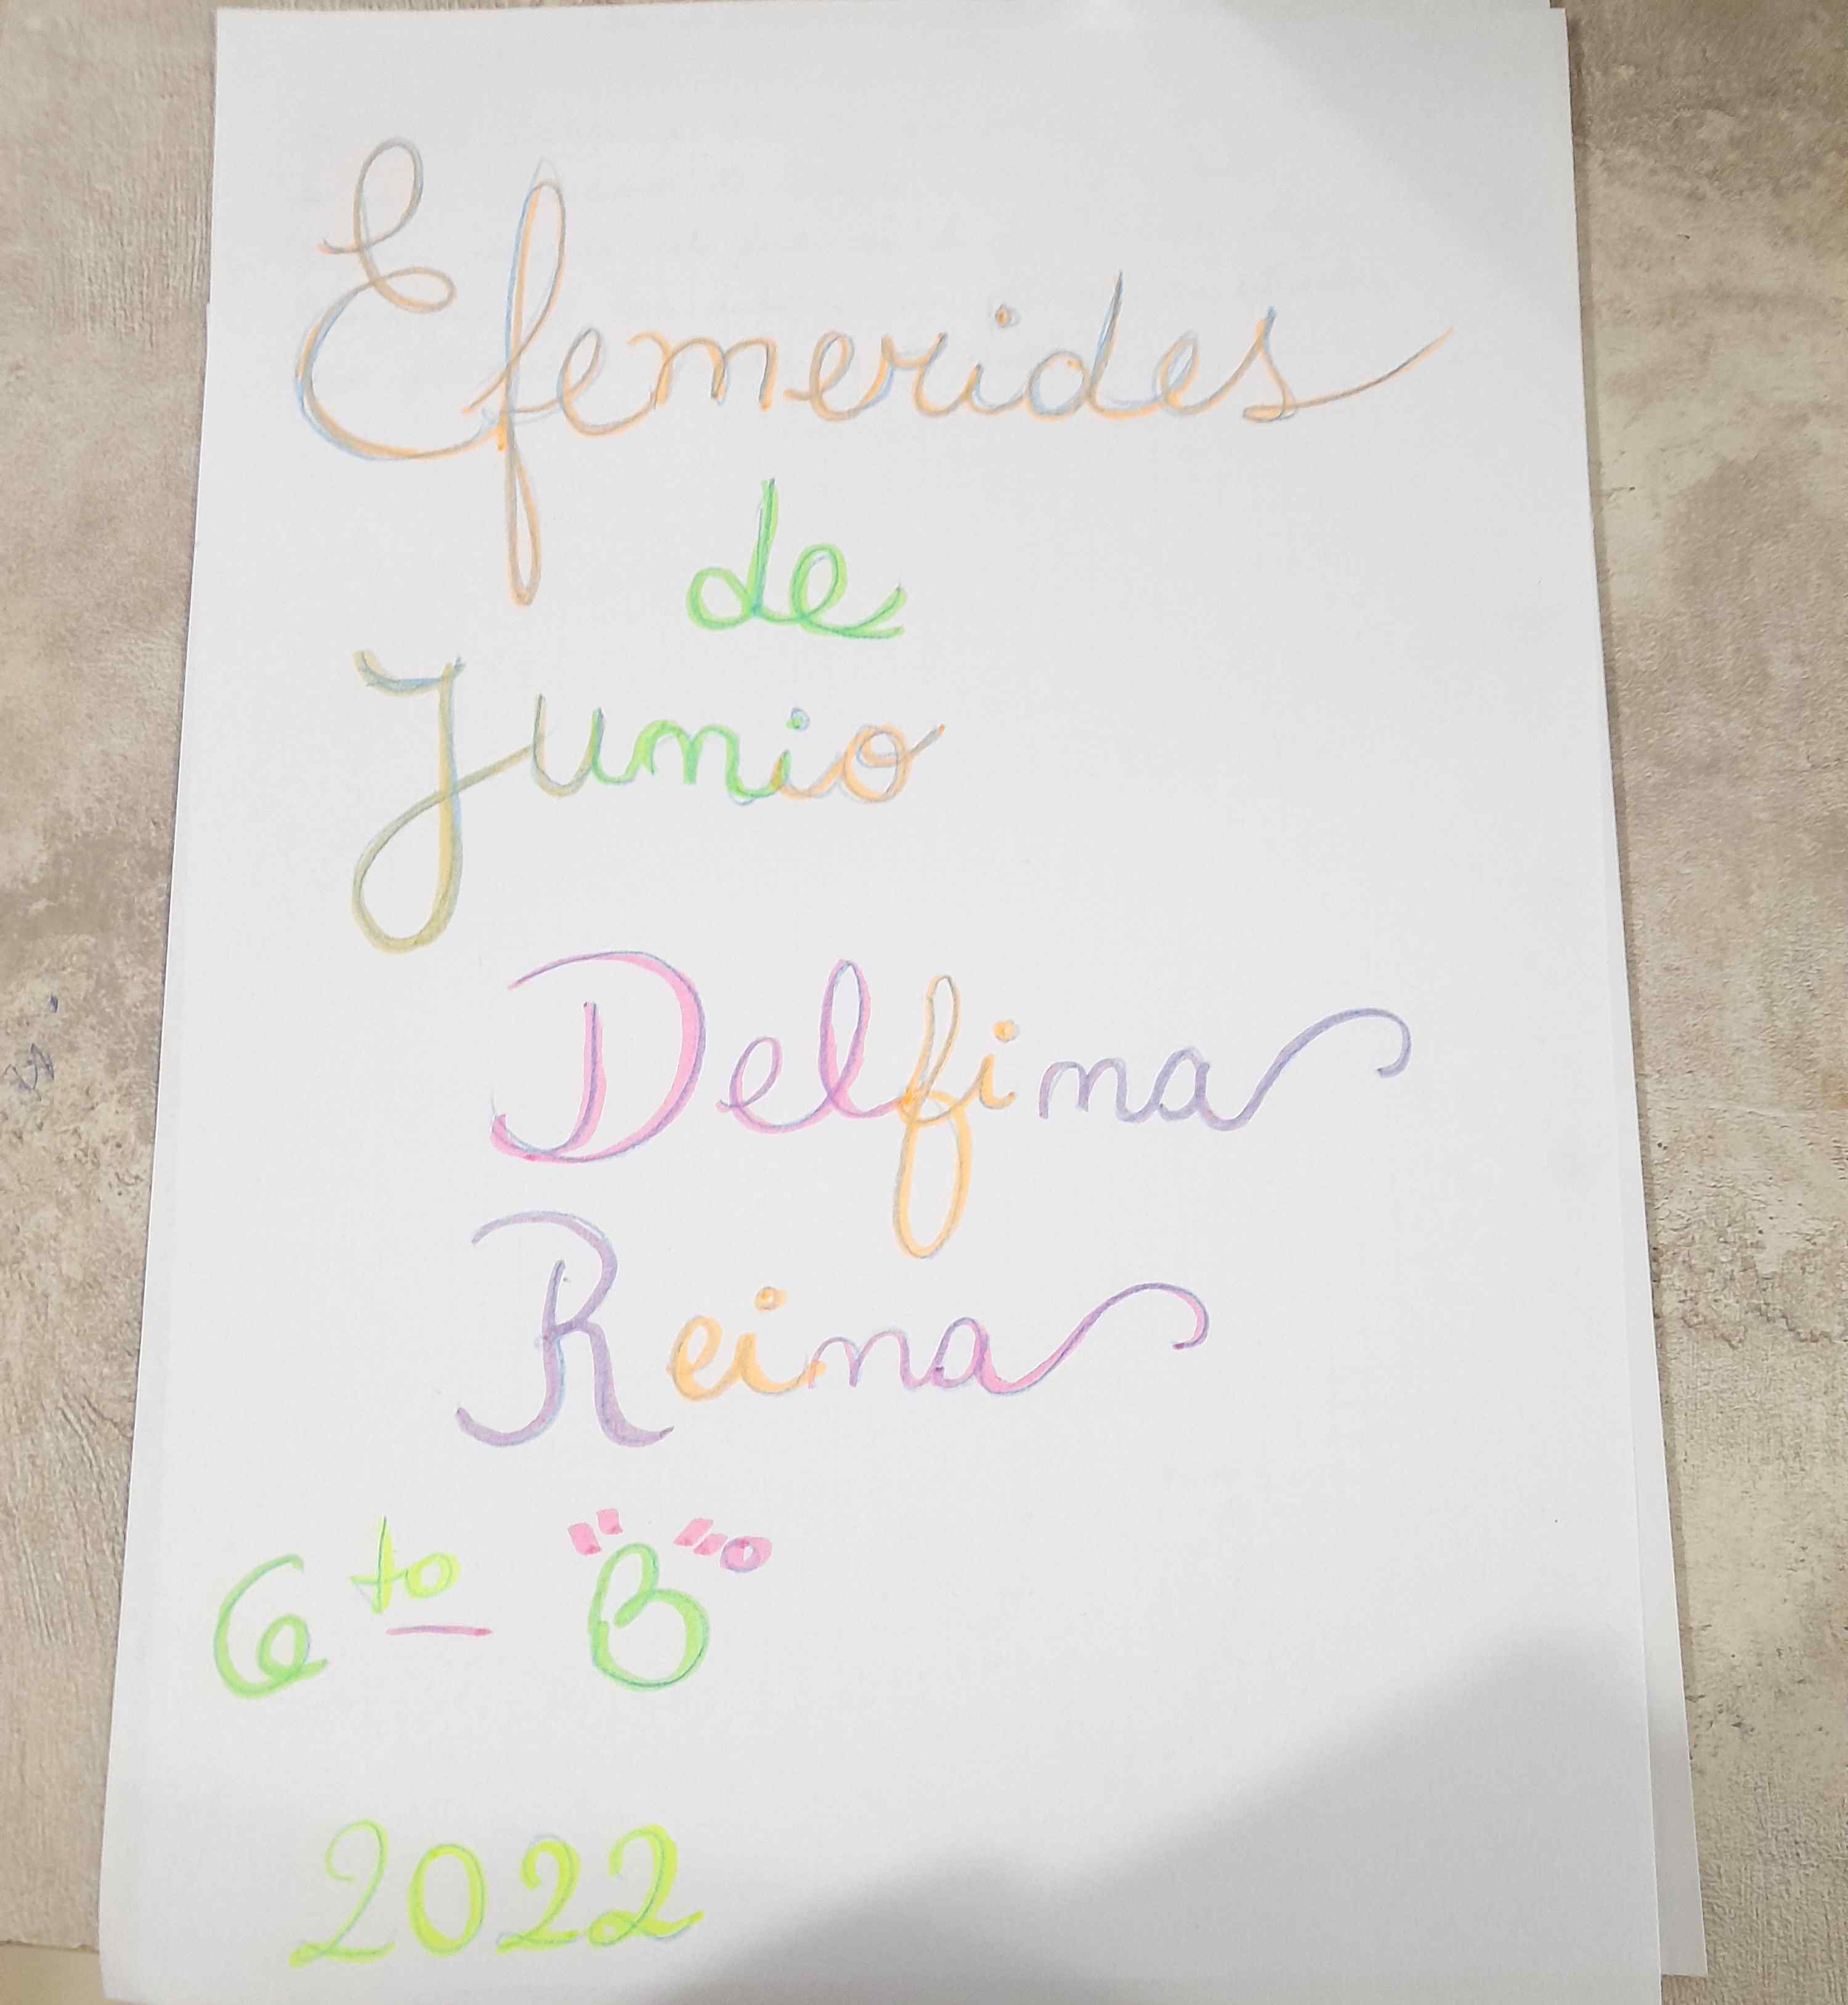 Efemerides
de
Junio
Delfina
Reina
6to "B".
2022